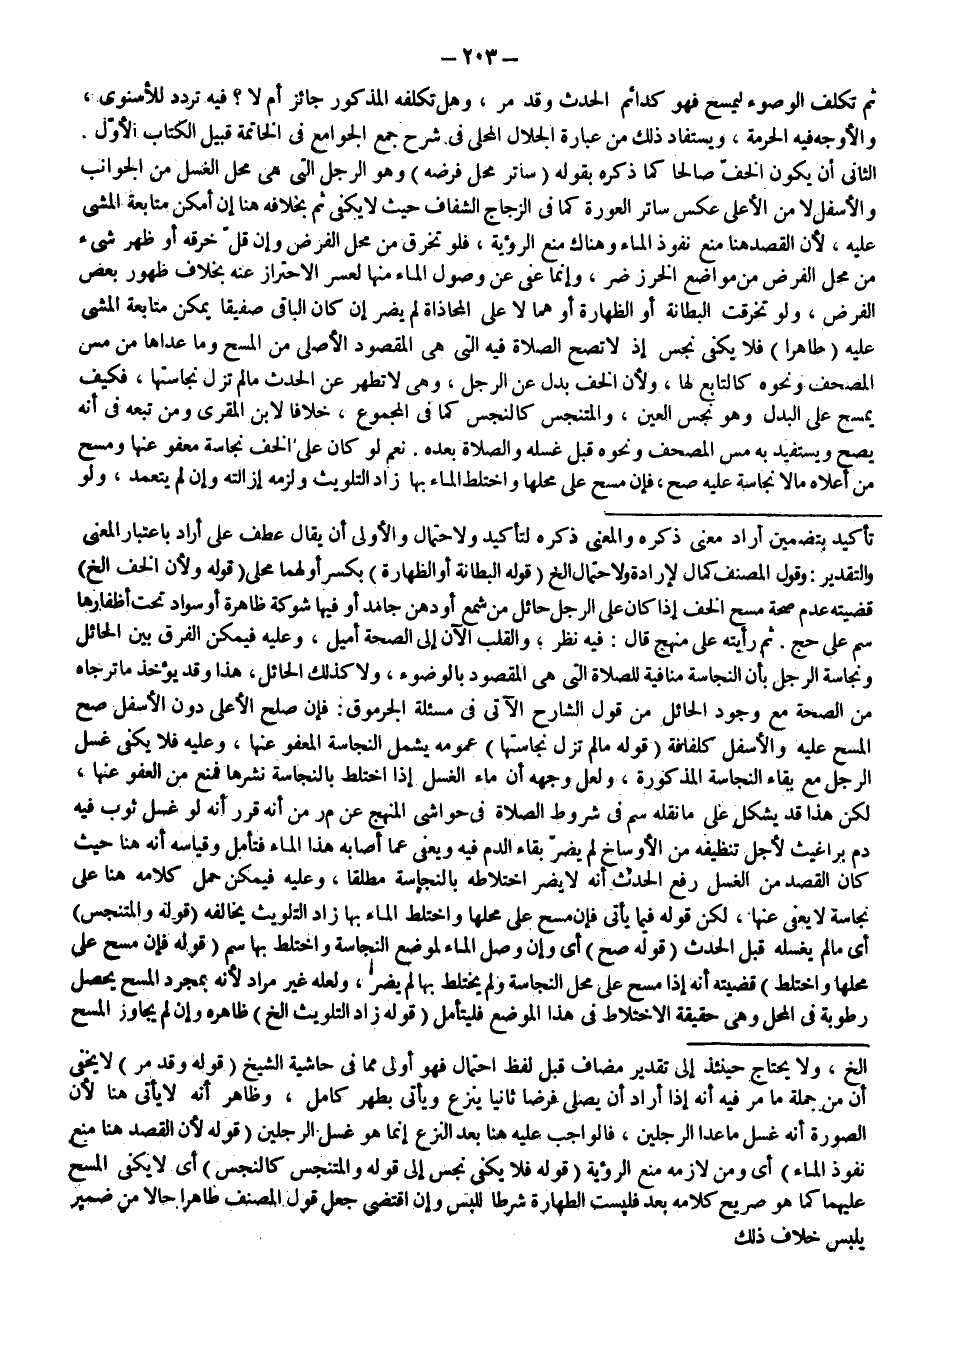 — ٢٠٣ —
ثم تكلف الوصوء ليمسح فهو كدائم الحدث وقد مر ، وهل تكلفه المذكور جائز أم لا ؟ فيه تردد للأسنوى ،
والأوجه فيه الحرمة ، ويستفاد ذلك من عبارة الجلال المحلى فى شرح جمع الجوامع فى الخاتمة قبيل الكتاب الأوّل .
الثانى أن يكون الخفّ صالحا كما ذكره بقوله ( ساتر محل فرضه ) وهو الرجل التى هى محل الغسل من الجوانب
والأسفل لا من الأعلى عكس ساتر العورة كما فى الزجاج الشفاف حيث لا يكفى ثم بخلافه هنا إن أمكن متابعة المشى
عليه ، لأن القصد هنا منع نفوذ الماء وهناك منع الرؤية ، فلو تخرق من محل الفرض وإن قلّ خرقه أو ظهر شىء
من محل الفرض من مواضع الخرز ضر ، وإنما عفى عن وصول الماء منها لعسر الاحتراز عنه بخلاف ظهور بعض
الفرض ، ولو تخرقت البطانة أو الظهارة أو هما لا على المحاذاة لم يضر إن كان الباقى صفيقا يمكن متابعة المشى
عليه ( طاهرا ) فلا يكفى نجس إذ لا تصح الصلاة فيه التى هى المقصود الأصلى من المسح وما عداها من مس
المصحف ونحوه كالتابع لها ، ولأن الخف بدل عن الرجل ، وهى لا تطهر عن الحدث مالم تزل نجاستها ، فكيف
يمسح على البدل وهو نجس العين ، والمتنجس كالنجس كما فى المجموع ، خلافا لابن المقرى ومن تبعه فى أنه
يصح ويستفيد به مس المصحف ونحوه قبل غسله والصلاة بعده . نعم لو كان على الخف نجاسة معفو عنها ومسح
من أعلاه مالا نجاسة عليه صح ، فإن مسح على محلها واختلط الماء بها زاد التلويث ولزمه إزالته وإن لم يتعمد ، ولو
تأكيد بتضمين أراد معنى ذكره والمعنى ذكره لتأكيد ولاحتمال والأولى أن يقال عطف على أراد باعتبار المعنى
والتقدير : وقول المصنف كمال لإرادة ولاحتمال الخ ( قوله البطانة أو الظهارة ) بكسر أولهما محلى ( قوله ولأن الخف الخ)
قضيته عدم صحة مسح الخف إذا كان على الرجل حائل من شمع أو دهن جامد أو فيها شوكة ظاهرة أو سواد تحت أظفارها
سم على حج . ثم رأيته على منهج قال : فيه نظر ؛ والقلب الآن إلى الصحة أميل ، وعليه فيمكن الفرق بين الحائل
ونجاسة الرجل بأن النجاسة منافية للصلاة التى هى المقصود بالوضوء ، ولا كذلك الحائل، هذا وقد يؤخذ ما ترجاه
من الصحة مع وجود الحائل من قول الشارح الآتى فى مسئلة الجرموق : فإن صلح الأعلى دون الأسفل صح
المسح عليه والأسفل كلفافة ( قوله مالم تزل نجاستها ) عمومه يشمل النجاسة المعفو عنها ، وعليه فلا يكفى غسل
الرجل مع بقاء النجاسة المذكورة ، ولعل وجهه أن ماء الغسل إذا اختلط بالنجاسة نشرها فمنع من العفو عنها ،
لكن هذا قد يشكل على ما نقله سم فى شروط الصلاة فى حواشى المنهج عن مر من أنه قرر أنه لو غسل ثوب فيه
دم براغيث لأجل تنظيفه من الأوساخ لم يضرّ بقاء الدم فيه ويعفى عما أصابه هذا الماء فتأمل وقياسه أنه هنا حيث
كان القصد من الغسل رفع الحدث أنه لا يضر اختلاطه بالنجاسة مطلقا ، وعليه فيمكن حمل كلامه هنا على
نجاسة لا يعفى عنها ، لكن قوله فيما يأتى فإن مسح على محلها واختلط الماء بها زاد التلويث يخالفه (قوله والمتنجس)
أى مالم يغسله قبل الحدث ( قوله صح ) أى وإن وصل الماء لموضع النجاسة واختلط بها سم ( قوله فإن مسح على
محلها واختلط ) قضيته أنه إذا مسح على محل النجاسة ولم يختلط بها لم يضر ، ولعله غير مراد لأنه بمجرد المسح يحصل
رطوبة فى المحل وهى حقيقة الاختلاط فى هذا الموضع فليتأمل ( قوله زاد التلويث الخ ) ظاهره وإن لم يجاوز المسح
الخ ، ولا يحتاج حينئذ إلى تقدير مضاف قبل لفظ احتمال فهو أولى مما فى حاشية الشيخ ( قوله وقد مر ) لا يخفى
أن من جملة ما مر فيه أنه إذا أراد أن يصلى فرضا ثانيا ينزع ويأتى بطهر كامل ، وظاهر أنه لا يأتى هنا لأن
الصورة أنه غسل ماعدا الرجلين ، فالواجب عليه هنا بعد النزع إنما هو غسل الرجلين ( قوله لأن القصد هنا منع
نفوذ الماء ) أى ومن لازمه منع الرؤية ( قوله فلا يكفى نجس إلى قوله والمتنجس كالنجس ) أى لا يكفى المسح
عليهما كما هو صريح كلامه بعد فليست الطهارة شرطا للبس وإن اقتضى جعل قول المصنف طاهرا حالا من ضمير
يلبس خلاف ذلك